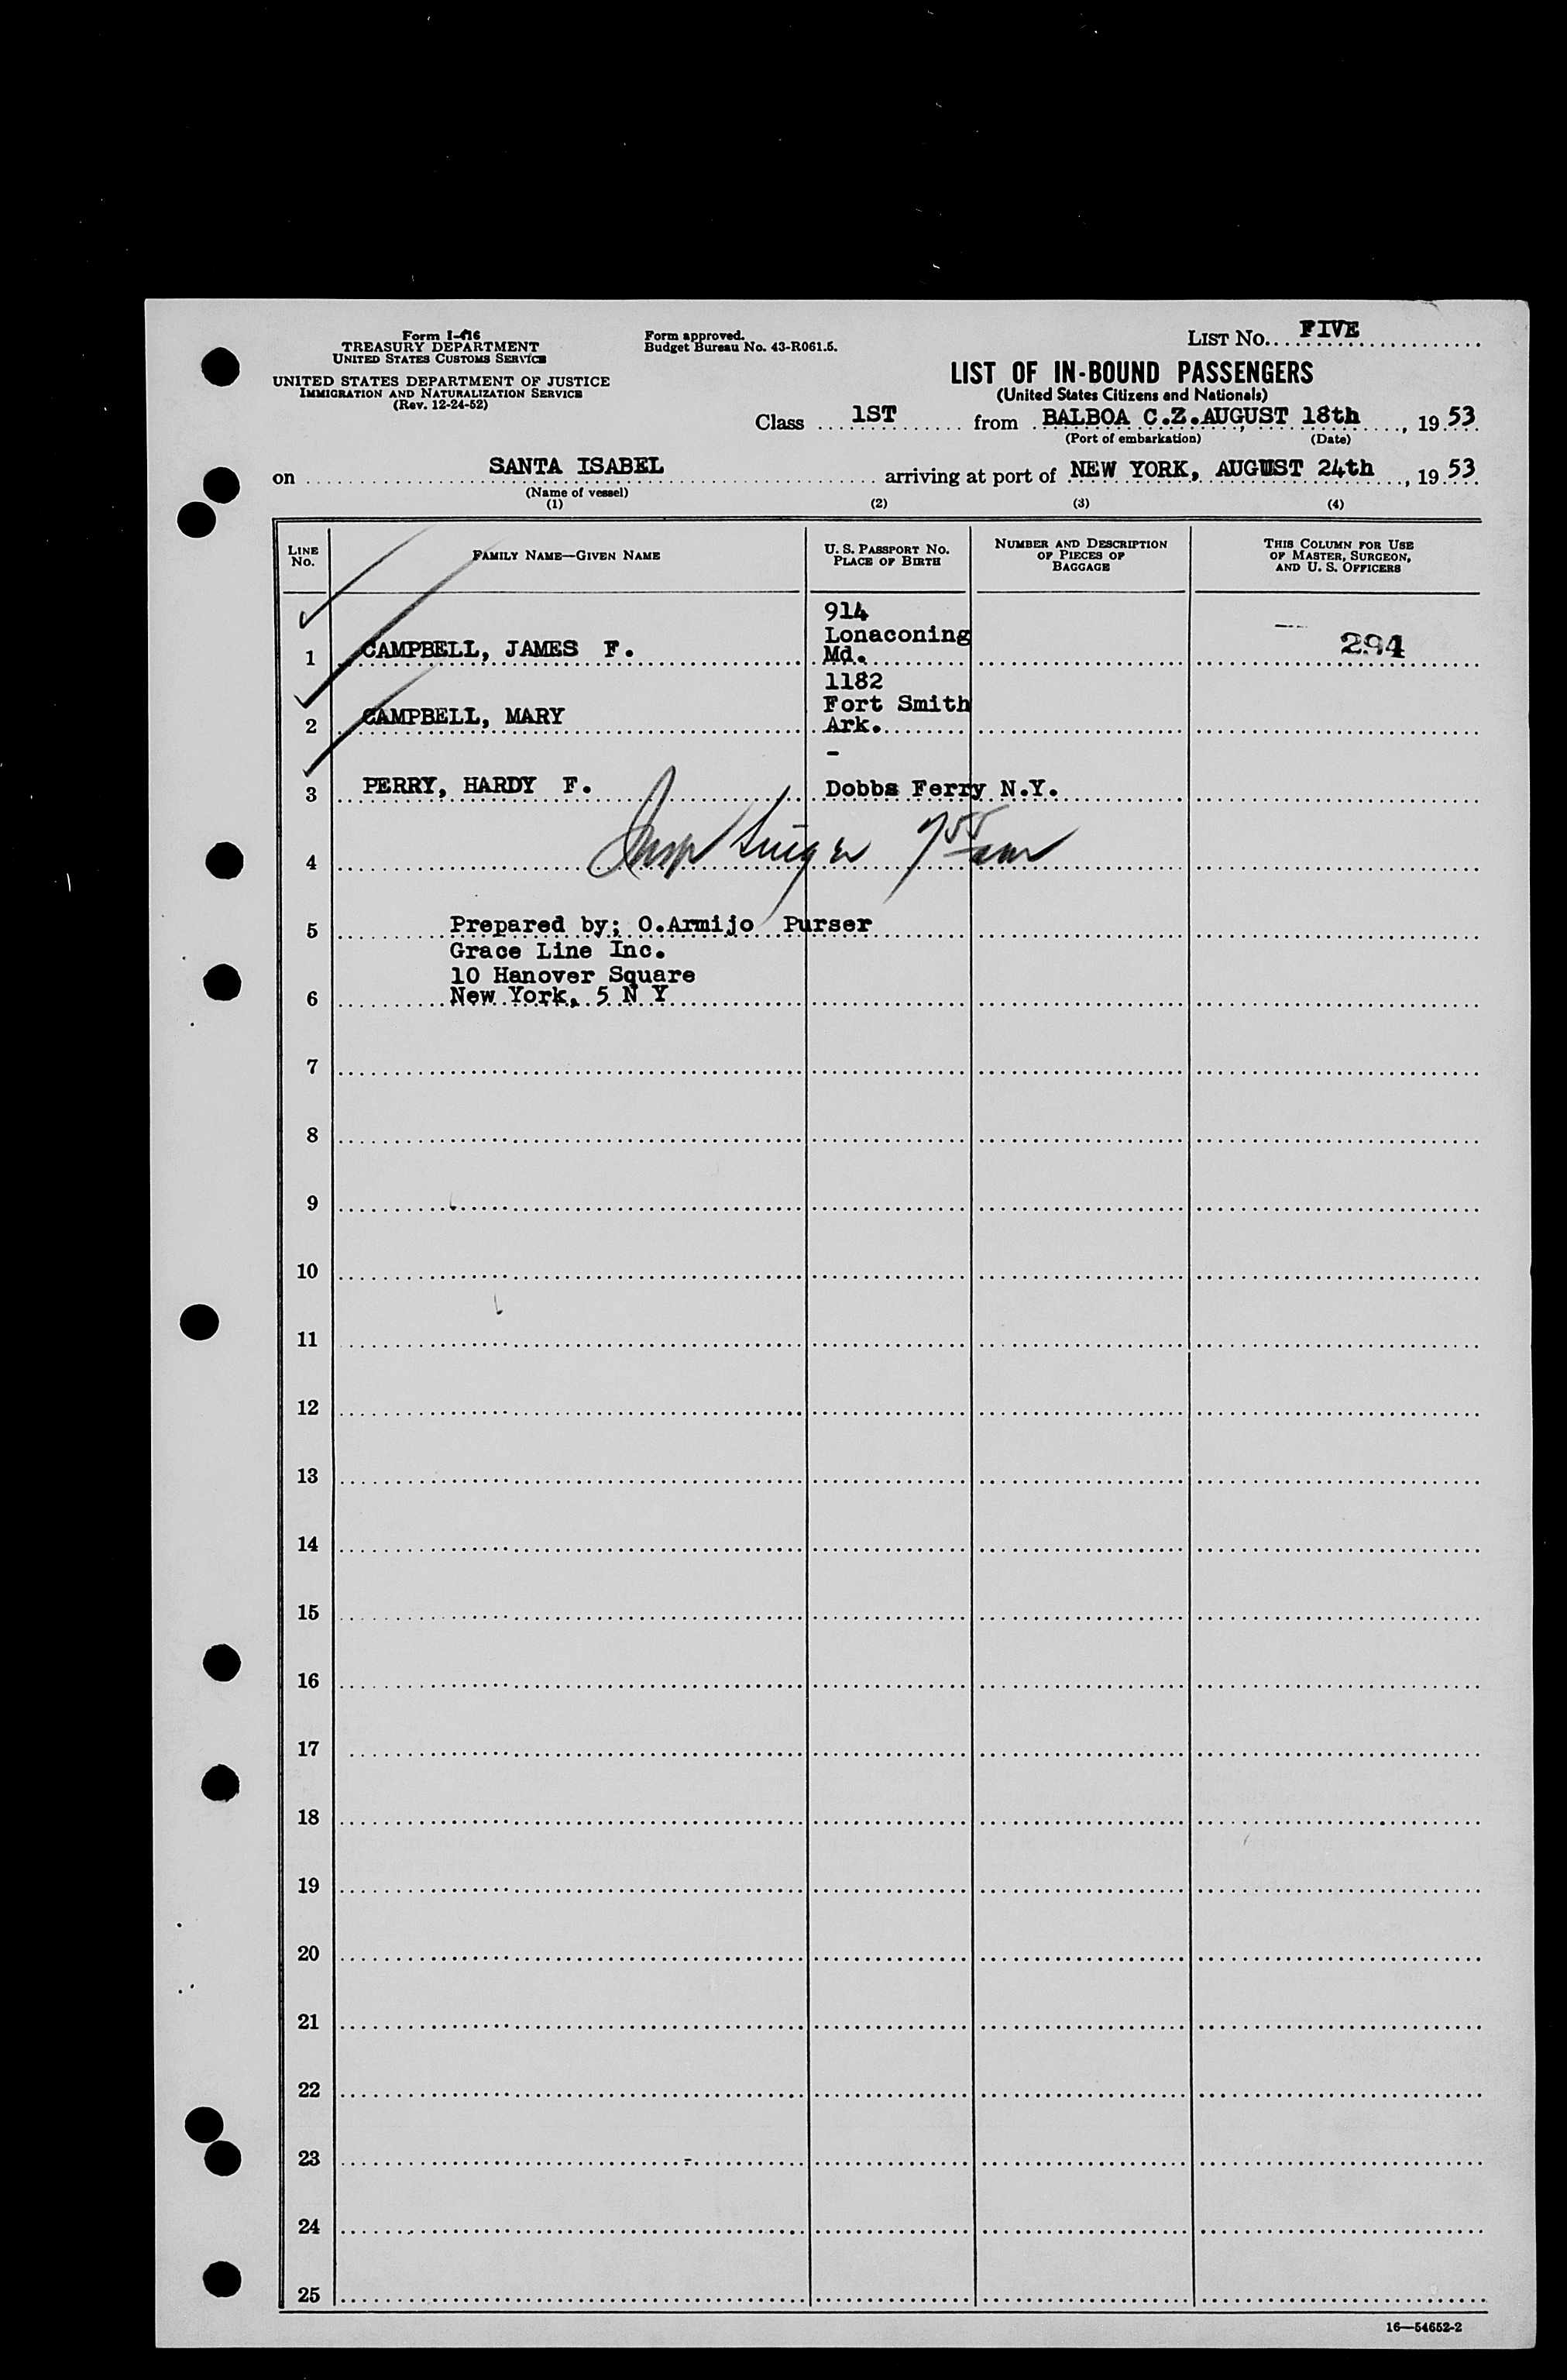 Form I-416
TREASURY DEPARTMENT
UNITED STATES CUSTOMS SERVICE
UNITED STATES DEPARTMENT OF JUSTICE
IMMIGRATION AND NATURALIZATION SERVICE
(Rev. 12-24-52)
Form approved.
Budget Bureau No. 43-R061.5.
LIST No. FIVE
LIST OF IN-BOUND PASSENGERS
(United States Citizens and Nationals)
Class 1ST from BALBOA C.Z. AUGUST 18th, 19 53
(Port of embarkation) (Date)
on SANTA ISABEL arriving at port of NEW YORK, AUGUST 24th, 19 53
(Name of vessel)
(1) (2) (3) (4)
LINE NO.
FAMILY NAME—GIVEN NAME
U. S. PASSPORT NO.
PLACE OF BIRTH
NUMBER AND DESCRIPTION
OF PIECES OF
BAGGAGE
THIS COLUMN FOR USE
OF MASTER, SURGEON,
AND U. S. OFFICERS
914
Lonaconing
1 CAMPBELL, JAMES F. Md. 294
1182
Fort Smith
2 CAMPBELL, MARY Ark.
-
3 PERRY, HARDY F. Dobbs Ferry N.Y.
4 Insp
5 Prepared by; O.Armijo Purser
Grace Line Inc.
10 Hanover Square
6 New York, 5 N Y
7
8
9
10
11
12
13
14
15
16
17
18
19
20
21
22
23
24
25
16—54652-2